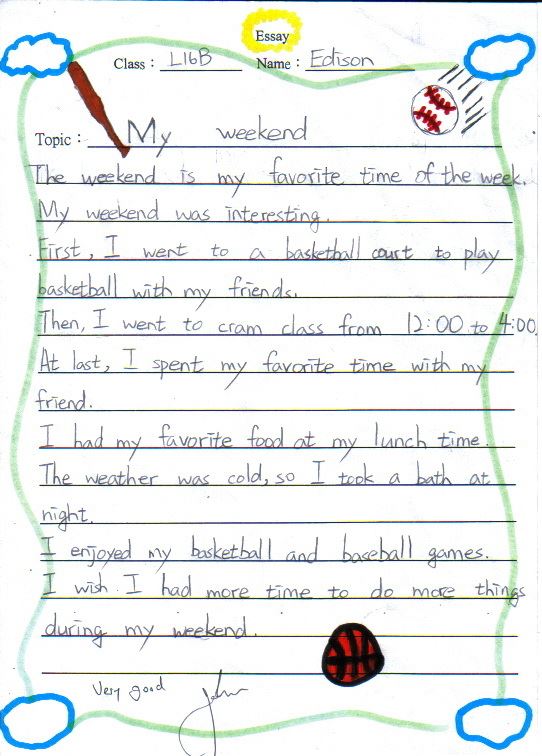 Essay
Class : L16B Name : Edison
Topic : My weekend
The weekend is my favorite time of the week.
My weekend was interesting.
First, I went to a basketball court to play
basketball with my friends.
Then, I went to cram class from 12:00 to 4:00.
At last, I spent my favorite time with my
friend.
I had my favorite food at my lunch time.
The weather was cold, so I took a bath at
night.
I enjoyed my basketball and baseball games.
I wish I had more time to do more things
during my weekend.
Very good